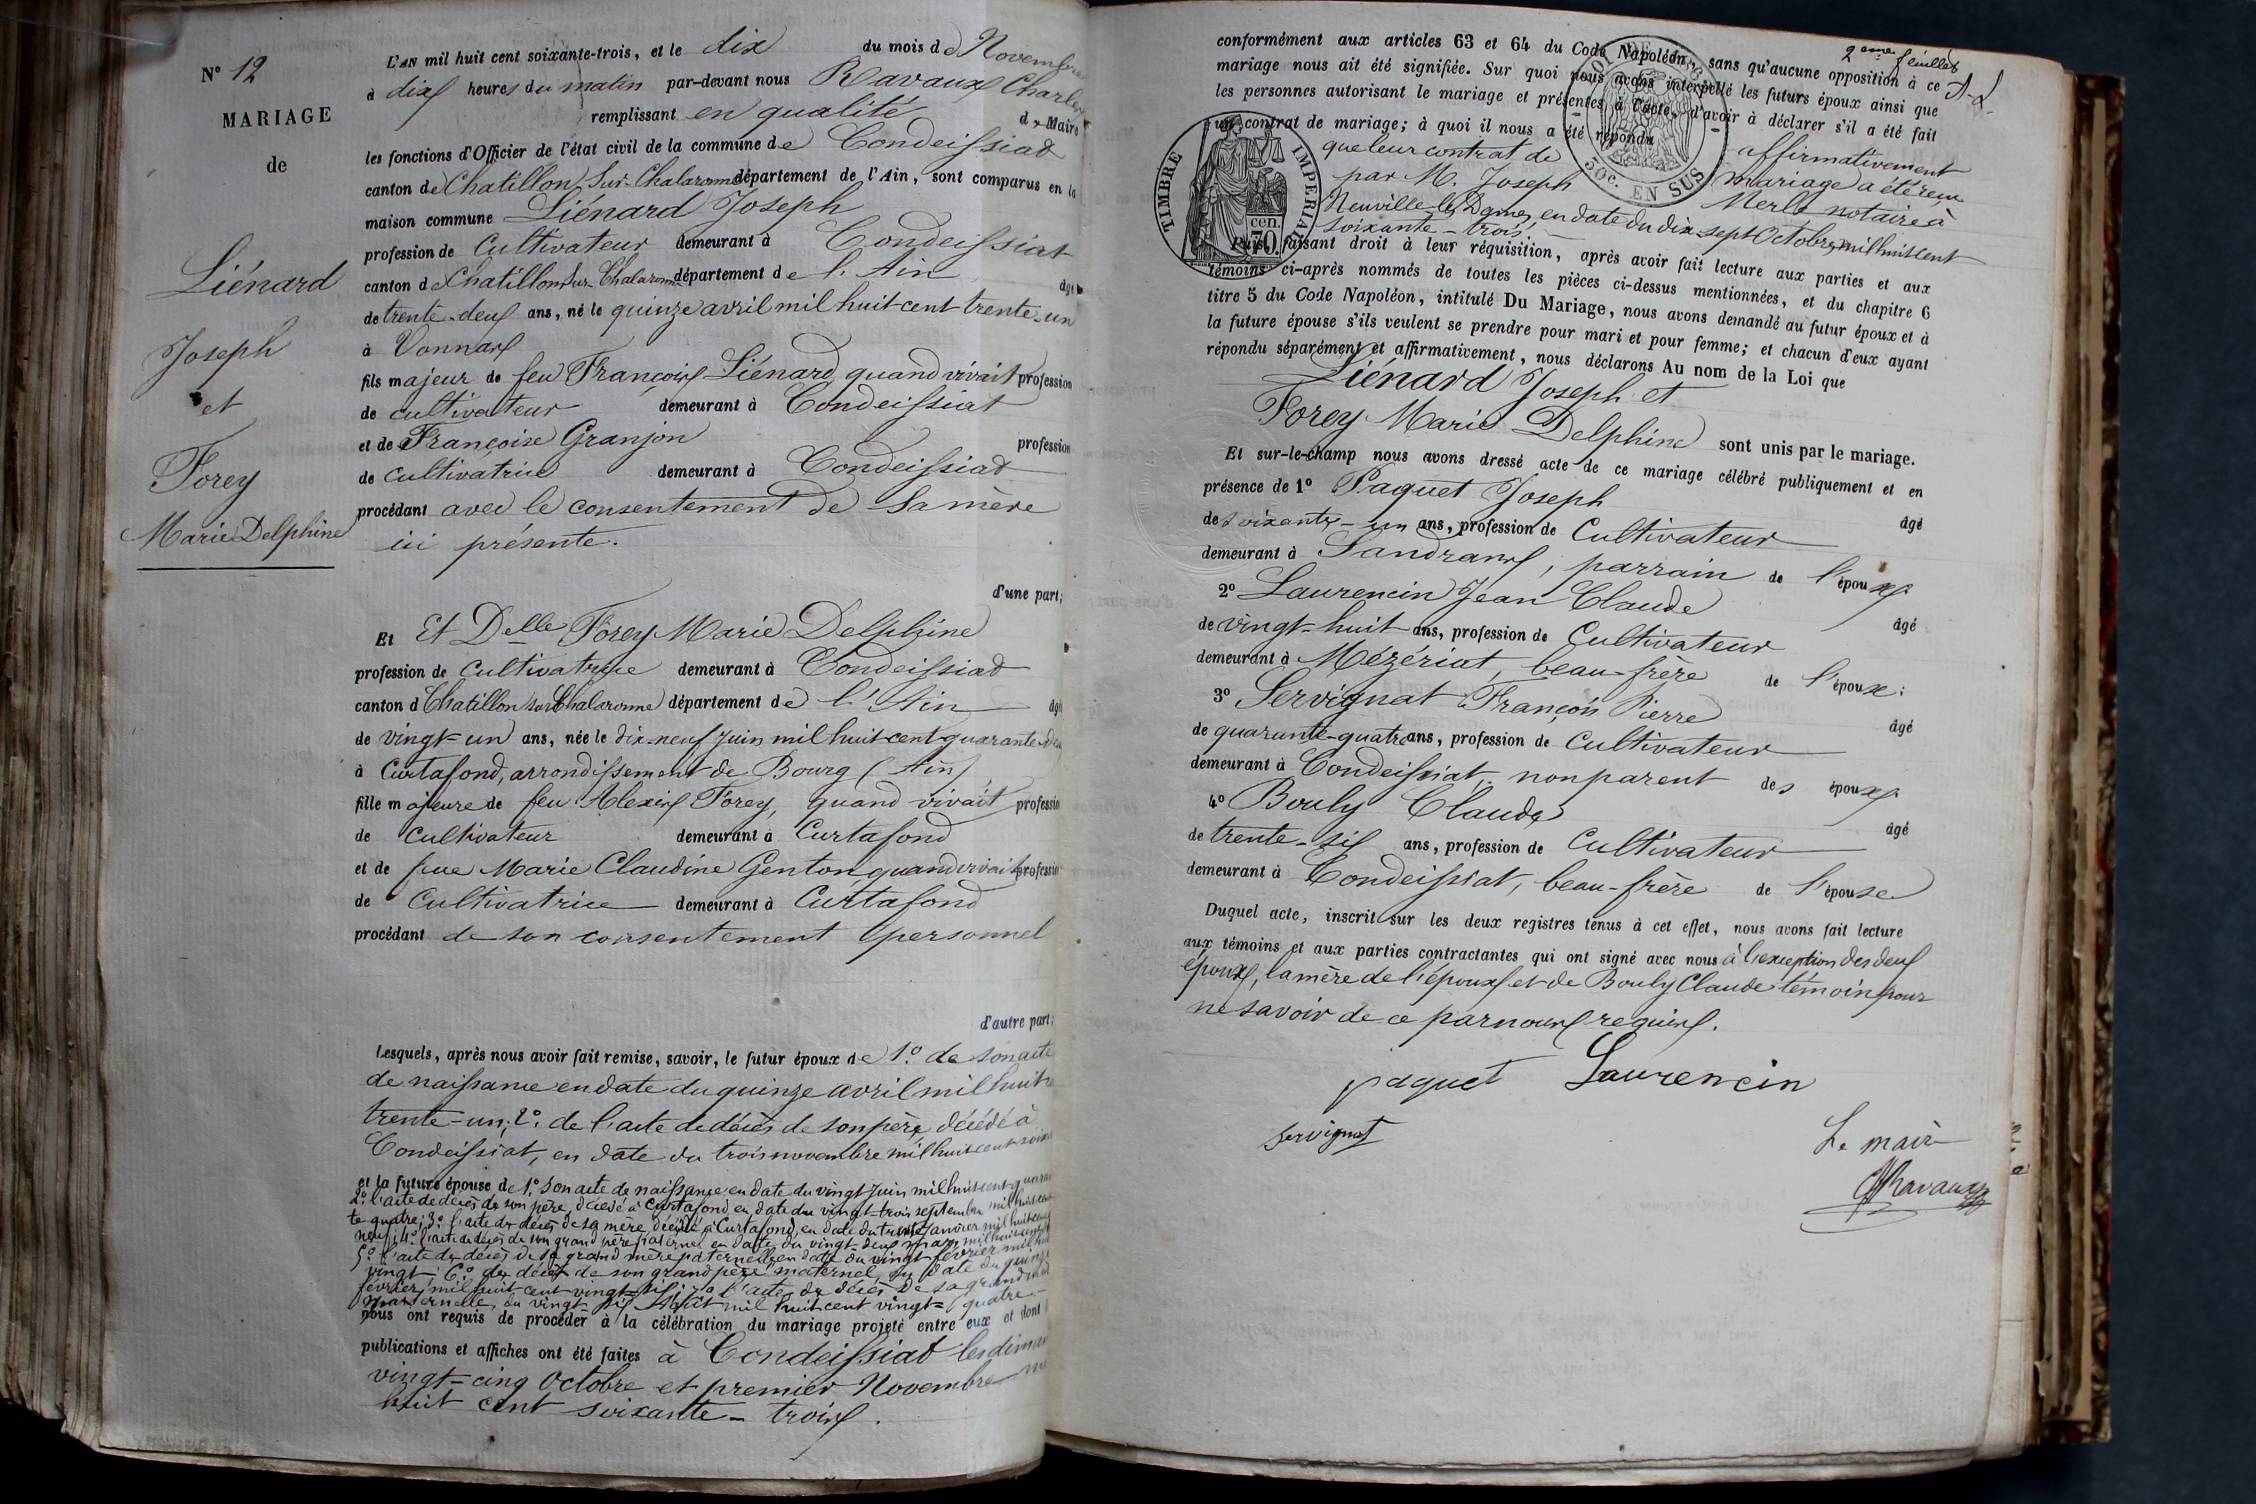 N° 12
MARIAGE
de
Liénard
Joseph
et
Forey
Marie Delphine
L'AN mil huit cent soixante-trois, et le dix du mois de Novembre
à dix heures du matin par-devant nous Ravaux Charles
remplissant en qualité de Maire
les fonctions d'Officier de l'état civil de la commune de Condeissiat
canton de Chatillon Sur Chalaronne département de l'Ain, sont comparus en la
maison commune Liénard Joseph
profession de Cultivateur demeurant à Condeissiat
canton de Chatillon Sur Chalaronne département de l'Ain âgé
de trente-deux ans, né le quinze avril mil huit cent trente-un
à Vonnas
fils majeur de feu François Liénard, quand vivait profession
de cultivateur demeurant à Condeissiat
et de Françoise Granjon profession
de cultivatrice demeurant à Condeissiat
procédant avec le consentement de Sa mère
ici présente.
d'une part;
Et Et Delle Forey Marie Delphine
profession de cultivatrice demeurant à Condeissiat
canton d Chatillon sur Chalaronne département de l'Ain âgé
de vingt-un ans, née le dix-neuf Juin mil huit cent quarante-deux
à Curtafond, arrondissement de Bourg (Ain)
fille majeure de feu Alexis Forey, quand vivait profession
de cultivateur demeurant à Curtafond
et de feue Marie Claudine Genton quand vivait profession
de Cultivatrice demeurant à Curtafond
procédant de son consentement personnel
d'autre part;
Lesquels, après nous avoir fait remise, savoir, le futur époux de 1° de son acte
de naissance en date du quinze avril mil huit
trente-un; 2° de l'acte de décès de son père, décédé à
Condeissiat, en date du trois novembre mil huit cent
et la future épouse de 1° son acte de naissance en date du vingt Juin mil huit cent
2° l'acte de décès de son père, décédé à Curtafond en date du vingt-trois septembre mil huit cent
te quatre; 3° l'acte de décès de sa mère, décédée à Curtafond, en date du trente Janvier mil huit cent
neuf; 4° l'acte de décès de son grand père paternel en date du vingt-deux mars mil huit cent
5° l'acte de décès de sa grand mère paternelle, en date du vingt février mil huit
vingt; 6° de décès de son grand père maternel, en date du quinze
février mil huit cent vingt-six; 7° l'acte de décès de sa grand mère
maternelle, du vingt-six Août mil huit cent vingt-quatre-
nous ont requis de procéder à la célébration du mariage projeté entre eux et dont
publications et affiches ont été faites à Condeissiat les
vingt-cinq Octobre et premier Novembre
huit cent soixante-trois.
2eme feuillet
conformément aux articles 63 et 64 du Code Napoléon, sans qu'aucune opposition à ce
mariage nous ait été signifiée. Sur quoi nous avons interpellé les futurs époux ainsi que
les personnes autorisant le mariage et présentes à l'acte, d'avoir à déclarer s'il a été fait
un contrat de mariage; à quoi il nous a été répondu affirmativement
que leur contrat de mariage a été reçu
par M. Joseph Merle notaire à
Neuville les Dames, en date du dix-sept Octobre mil huit cent
soixante-trois.
TIMBRE IMPERIAL
70. cen.
50c. EN SUS
Puis, faisant droit à leur réquisition, après avoir fait lecture aux parties et aux
témoins ci-après nommés de toutes les pièces ci-dessus mentionnées, et du chapitre 6
titre 5 du Code Napoléon, intitulé Du Mariage, nous avons demandé au futur époux et à
la future épouse s'ils veulent se prendre pour mari et pour femme; et chacun d'eux ayant
répondu séparément et affirmativement, nous déclarons Au nom de la Loi que
Liénard Joseph et
Forey Marie Delphine sont unis par le mariage.
Et sur-le-champ nous avons dressé acte de ce mariage célébré publiquement et en
présence de 1° Paquet Joseph âgé
de soixante-un ans, profession de Cultivateur
demeurant à Sandrans, parrain de l'époux
2° Laurencin Jean Claude âgé
de vingt-huit ans, profession de Cultivateur
demeurant à Mézériat, beau-frère de l'époux;
3° Servignat François Pierre âgé
de quarante-quatre ans, profession de Cultivateur
demeurant à Condeissiat, non parent des époux
4° Bouly Claude âgé
de trente-six ans, profession de Cultivateur
demeurant à Condeissiat, beau-frère de l'épouse
Duquel acte, inscrit sur les deux registres tenus à cet effet, nous avons fait lecture
aux témoins et aux parties contractantes qui ont signé avec nous à l'exception des deux
époux, la mère de l'époux et de Bouly Claude témoin pour
ne savoir de ce par nous requis.
paquet Laurencin
servignat
Le maire
Ravaux